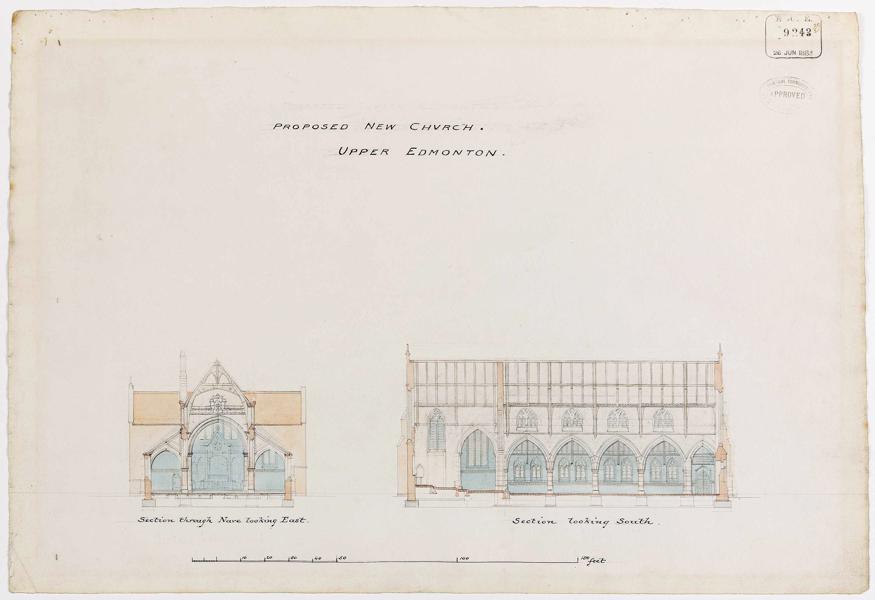 9242
26 JUN 1883
APPROVED
PROPOSED NEW CHVRCH.
UPPER EDMONTON.
Section through Nave looking East.
Section looking South.
10 20 30 40 50 100 feet